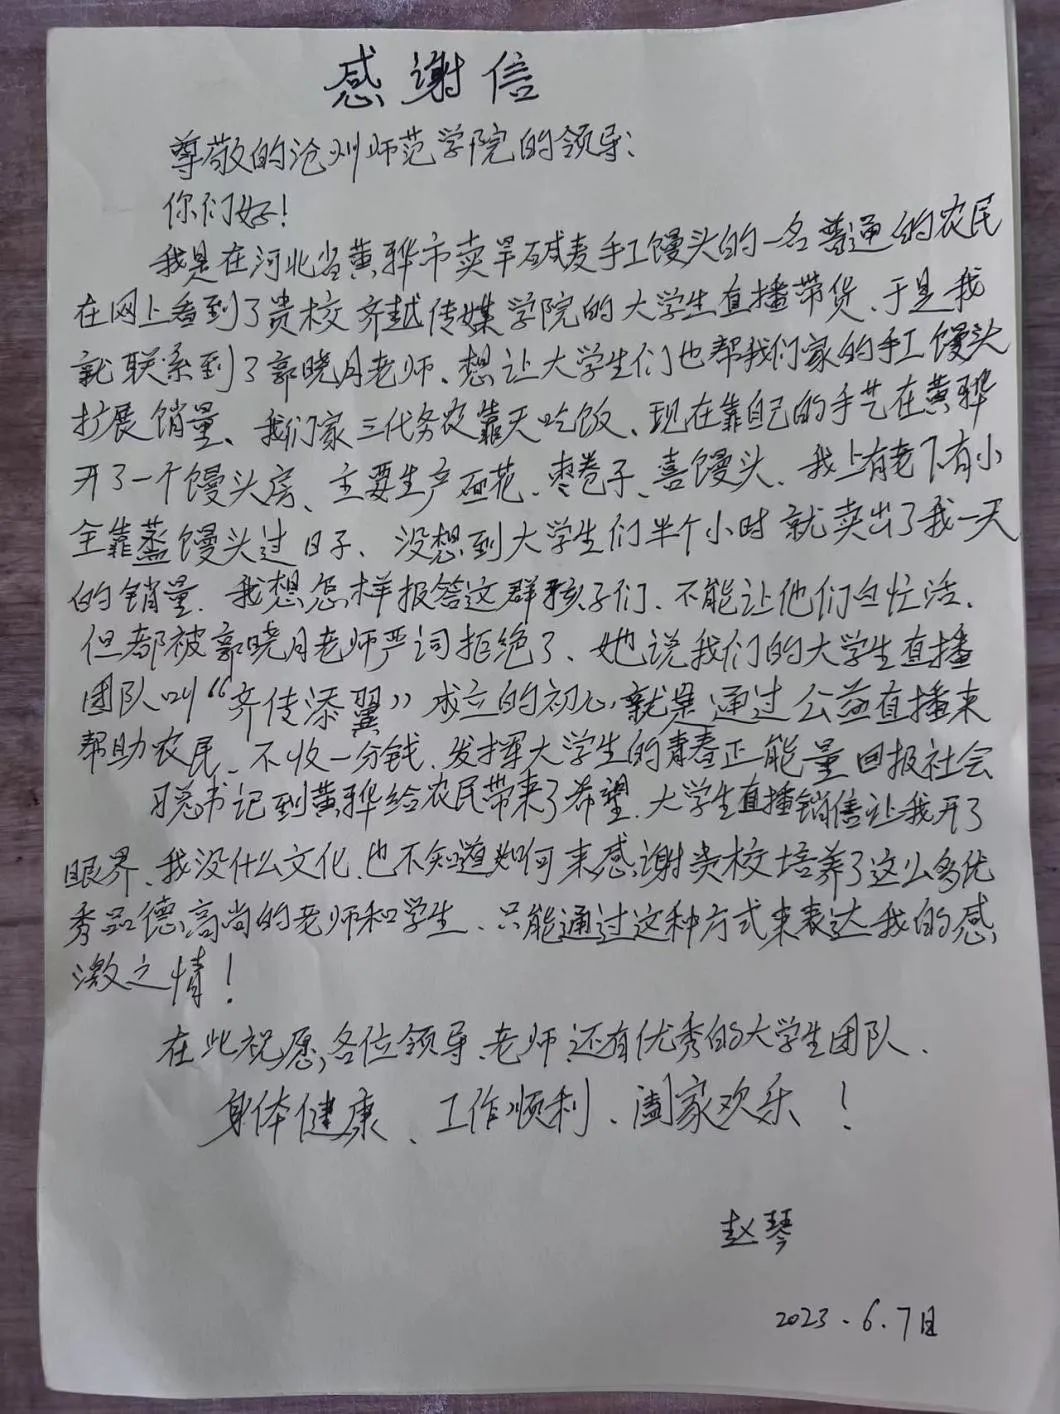 感谢信
尊敬的沧州师范学院的领导:
你们好!
我是在河北省黄骅市卖旱碱麦手工馒头的一名普通的农民
在网上看到了贵校齐越传媒学院的大学生直播带货、于是我
就联系到了郭晓月老师、想让大学生们也帮我们家的手工馒头
扩展销量、我们家三代务农靠天吃饭、现在靠自己的手艺在黄骅
开了一个馒头房、主要生产面花、枣卷子、喜馒头、我上有老下有小
全靠蒸馒头过日子、没想到大学生们半个小时就卖出了我一天
的销量、我想怎样报答这群孩子们、不能让他们白忙活、
但都被郭晓月老师严词拒绝了、她说我们的大学生直播
团队叫“齐传添翼”成立的初心就是通过公益直播来
帮助农民、不收一分钱、发挥大学生的青春正能量回报社会
习总书记到黄骅给农民带来了希望、大学生直播销售让我开了
眼界、我没什么文化、也不知道如何来感谢贵校培养了这么多优
秀品德高尚的老师和学生、只能通过这种方式来表达我的感
激之情!
在此祝愿,各位领导、老师、还有优秀的大学生团队、
身体健康、工作顺利、阖家欢乐!
赵琴
2023.6.7日